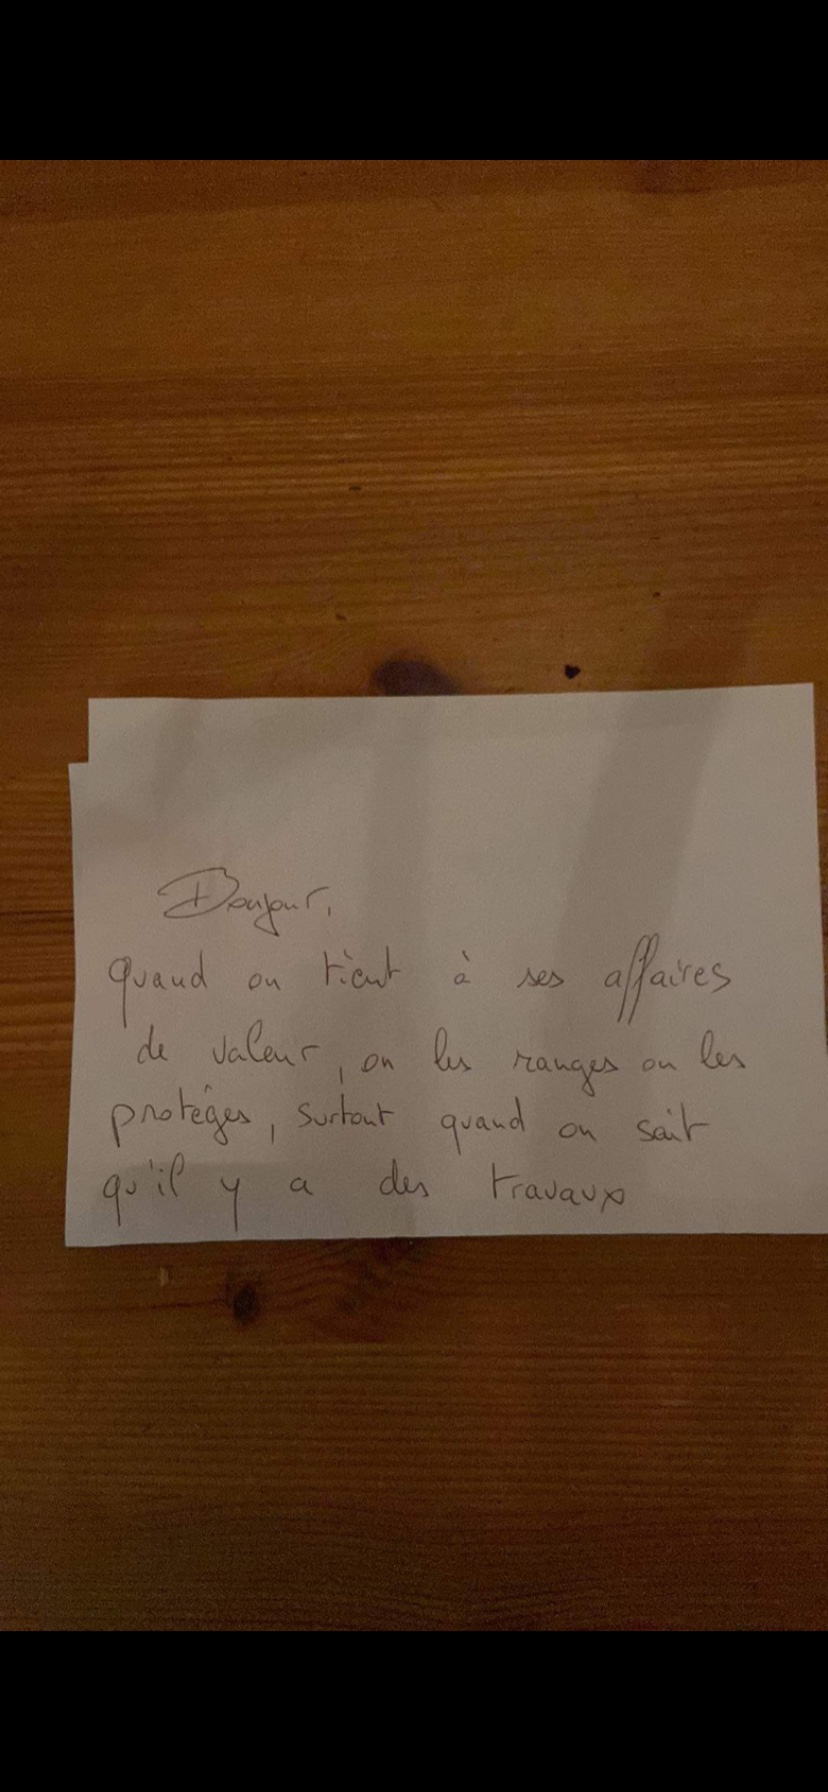 Bonjour,
quand on tient à ses affaires
de valeur, on les ranges ou les
protèges, surtout quand on sait
qu'il y a des travaux